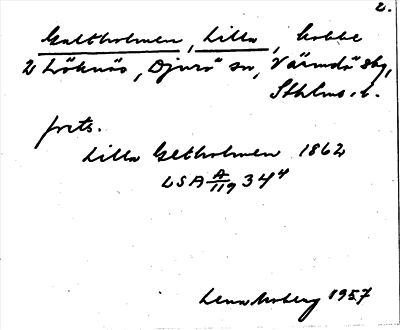 2.
Galtholmen, Lilla, kobbe
2 Löknäs, Djurö sn, Värmdö skg,
Sthlms l.
forts.
Lilla Getholmen 1862
LSA A/119 34⁴
Lena Moberg 1957